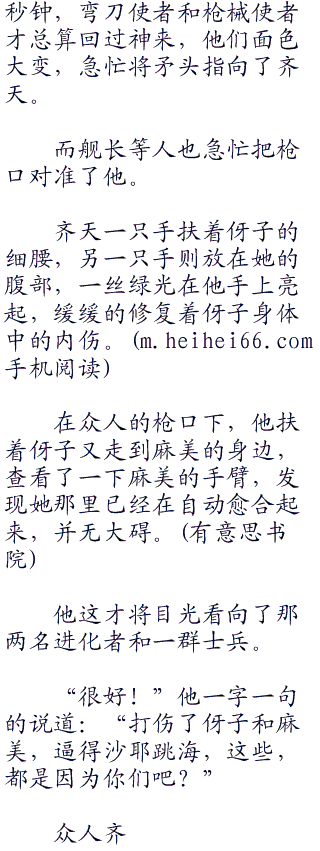 秒钟，弯刀使者和枪械使者
才总算回过神来，他们面色
大变，急忙将矛头指向了齐
天。
而舰长等人也急忙把枪
口对准了他。
齐天一只手扶着伢子的
细腰，另一只手则放在她的
腹部，一丝绿光在他手上亮
起，缓缓的修复着伢子身体
中的内伤。(m.heihei66.com
手机阅读)
在众人的枪口下，他扶
着伢子又走到麻美的身边，
查看了一下麻美的手臂，发
现她那里已经在自动愈合起
来，并无大碍。(有意思书
院)
他这才将目光看向了那
两名进化者和一群士兵。
“很好！”他一字一句
的说道：“打伤了伢子和麻
美，逼得沙耶跳海，这些，
都是因为你们吧？”
众人齐